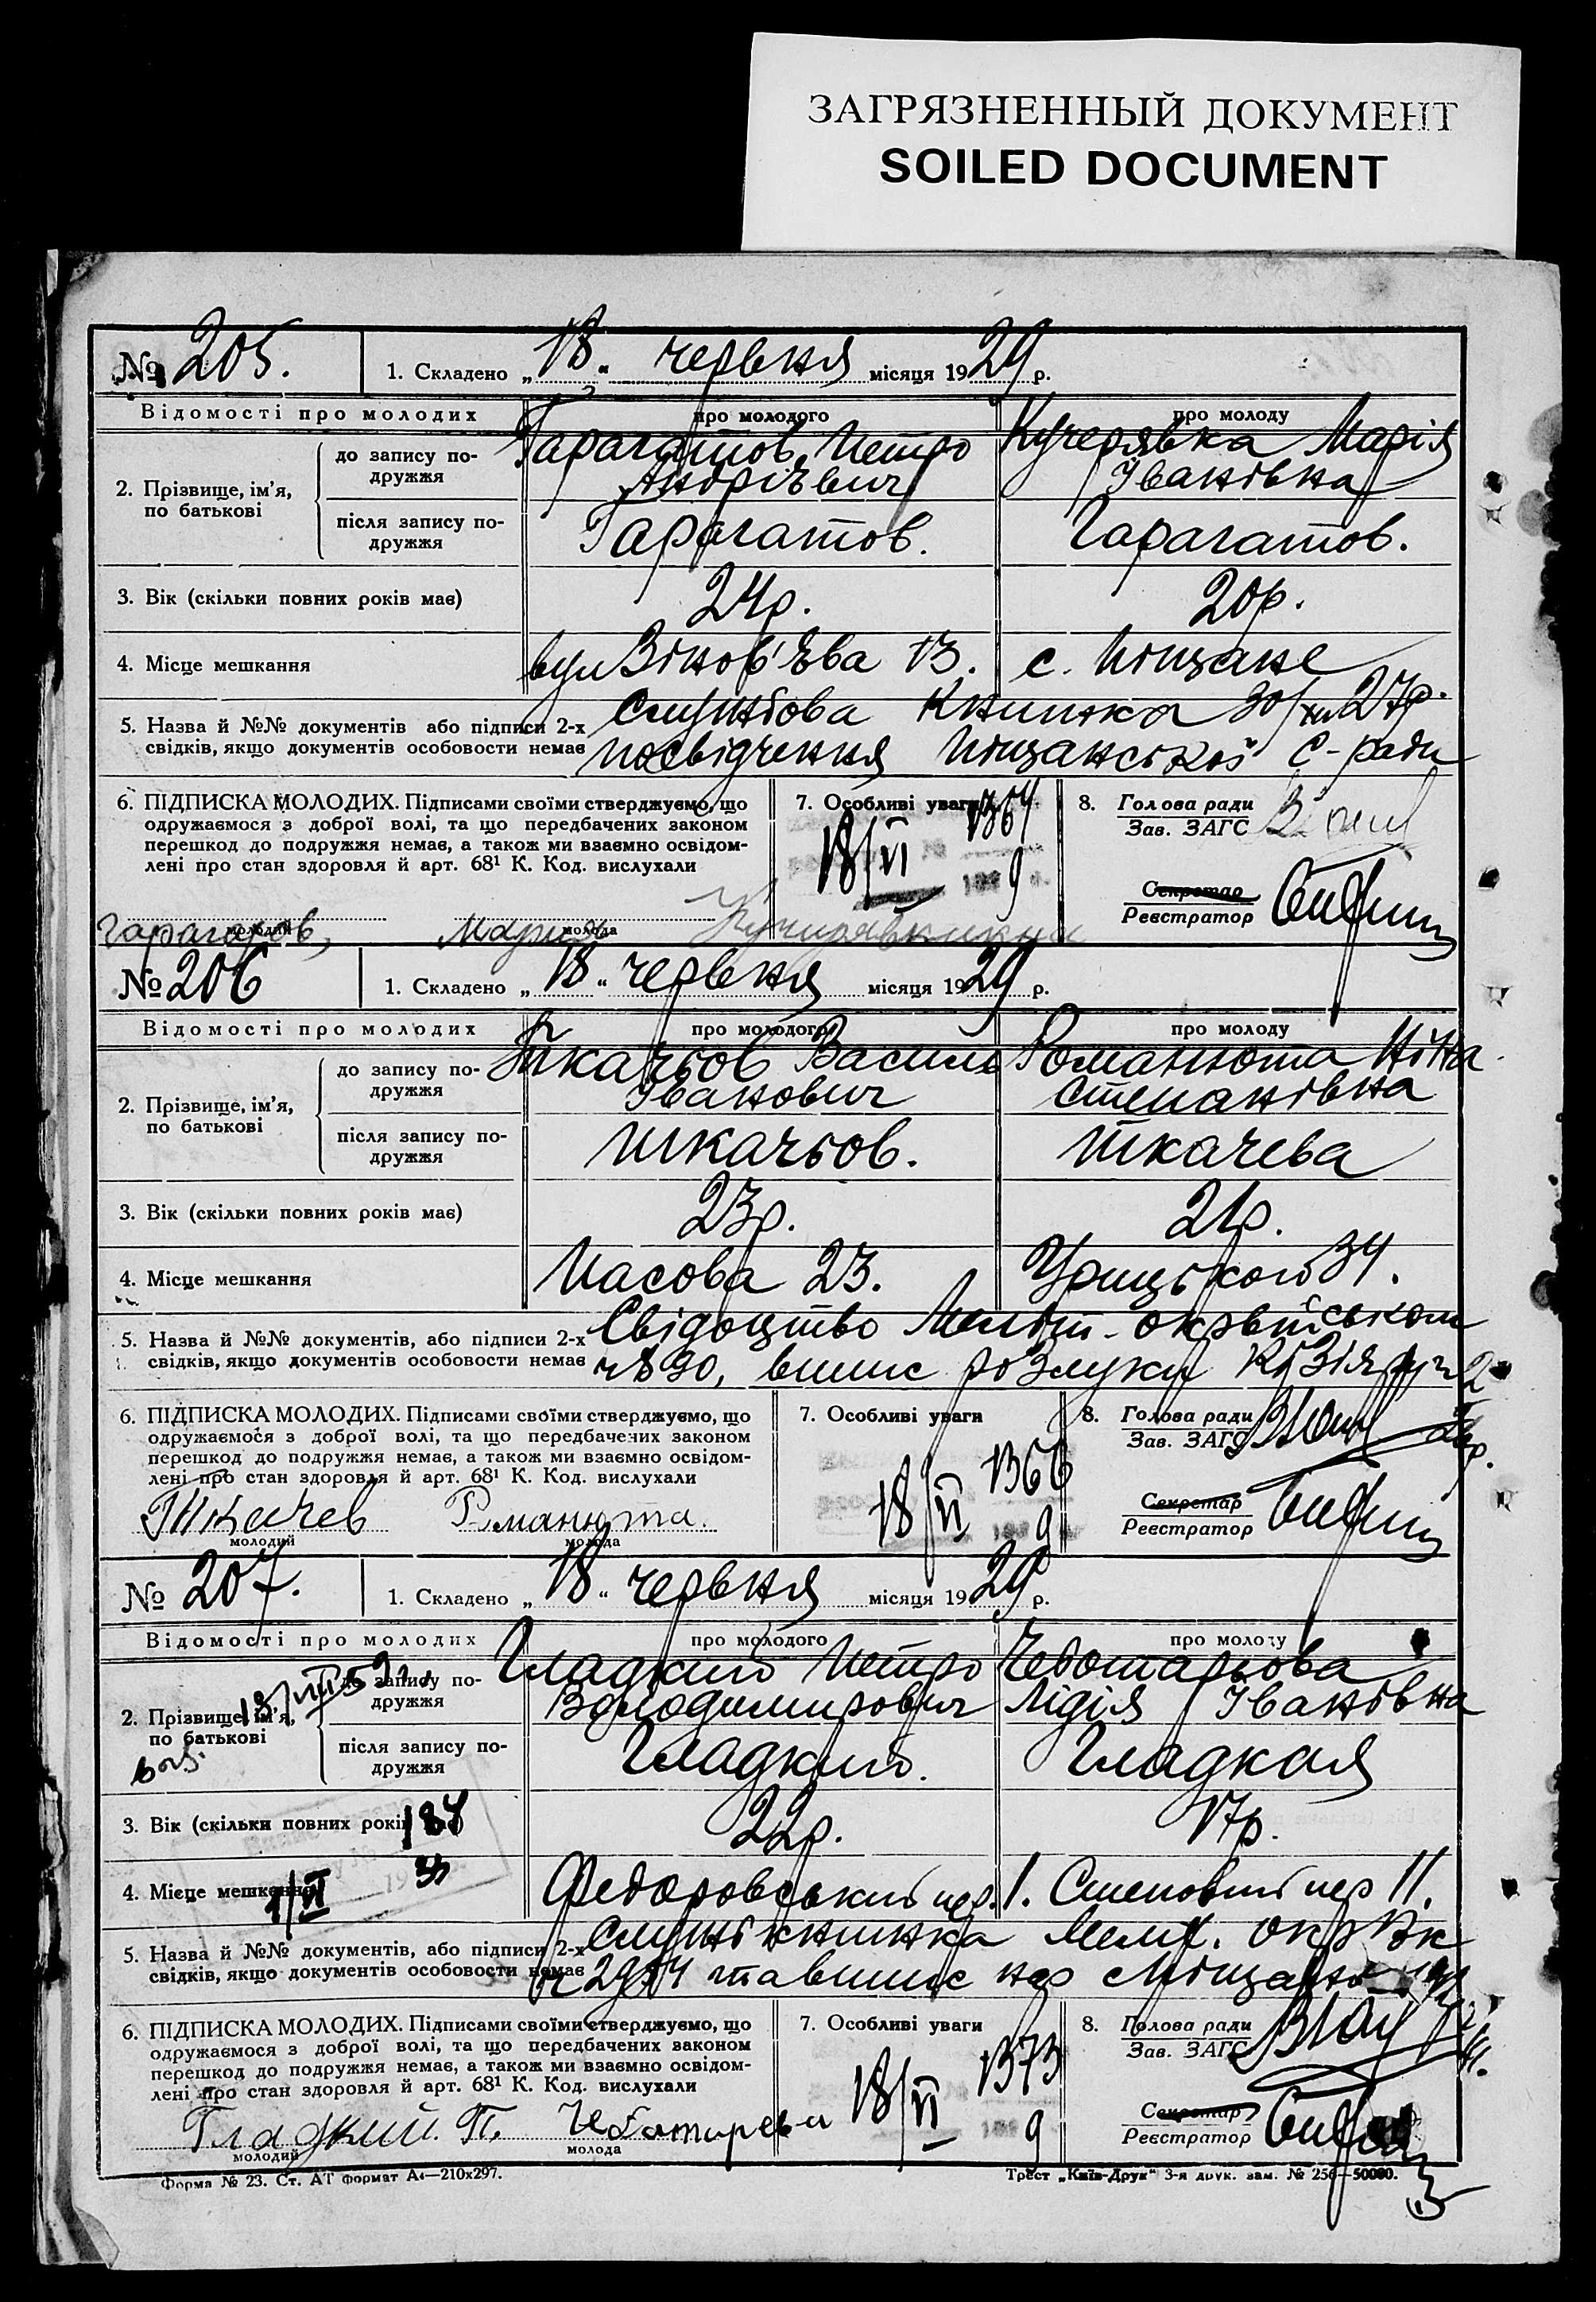 ЗАГРЯЗНЕННЫЙ ДОКУМЕНТ
SOILED DOCUMENT
№ 205. 1. Складено „18“ червня місяця 1929 р.
Відомості про молодих про молодого про молоду
2. Прізвище, ім'я, по батькові
до запису подружжя Гарагатов Петро Кучерявка Марія
Андрієвич Іванівна
після запису подружжя Гарагатов. Гарагатов.
3. Вік (скільки повних років має) 24р. 20р.
4. Місце мешкання вул Зінов'єва 13. с. Піщане
5. Назва й №№ документів або підписи 2-х Службова книжка 30/ 27р.
свідків, якщо документів особовости немає посвідчення Піщанської с-ради
6. ПІДПИСКА МОЛОДИХ. Підписами своїми стверджуємо, що
одружаємося з доброї волі, та що передбачених законом
перешкод до подружжя немає, а також ми взаємно освідом-
лені про стан здоровля й арт. 68¹ К. Код. вислухали
молодий Мария молода
7. Особливі уваги
1364
18/VI 9
8. Голова ради
Зав. ЗАГС
Секретар
Реєстратор
№ 206 1. Складено „18“ червня місяця 1929 р.
Відомості про молодих про молодого про молоду
2. Прізвище, ім'я, по батькові
до запису подружжя Ткачьов Василь Романюта Ніна
Іванович Степанівна
після запису подружжя Ткачьов. Ткачева
3. Вік (скільки повних років має) 23р. 21р.
4. Місце мешкання Пасова 23. Урицького 34.
5. Назва й №№ документів, або підписи 2-х Свідоцтво Меліт.
свідків, якщо документів особовости немає ч 890, випис розлуки
6. ПІДПИСКА МОЛОДИХ. Підписами своїми стверджуємо, що
одружаємося з доброї волі, та що передбачених законом
перешкод до подружжя немає, а також ми взаємно освідом-
лені про стан здоровля й арт. 68¹ К. Код. вислухали
Ткачев Романюта.
молодий молода
7. Особливі уваги
1366
18/VI 9
8. Голова ради
Зав. ЗАГС
Секретар
Реєстратор
№ 207. 1. Складено „18“ червня місяця 1929 р.
Відомості про молодих про молодого про молоду
2. Прізвище, ім'я, по батькові
до запису подружжя Гладкий Петро Чеботарьова
Володимирович Лідія Іванівна
після запису подружжя Гладкий. Гладкая
3. Вік (скільки повних років має) 22р. 17р.
4. Місце мешкання Федоровський пер. 1. Степовий пер 11.
5. Назва й №№ документів, або підписи 2-х Служб книжка Меліт. ОкрВк
свідків, якщо документів особовости немає ч 2914 та випис
6. ПІДПИСКА МОЛОДИХ. Підписами своїми стверджуємо, що
одружаємося з доброї волі, та що передбачених законом
перешкод до подружжя немає, а також ми взаємно освідом-
лені про стан здоровля й арт. 68¹ К. Код. вислухали
Гладкий. П.
молодий молода
7. Особливі уваги
1373
18/VI 9
8. Голова ради
Зав. ЗАГС
Секретар
Реєстратор
Форма № 23. Ст. АТ формат А4—210х297. Трест „Київ-Друк“ 3-я друк. зам. № 256—50000.